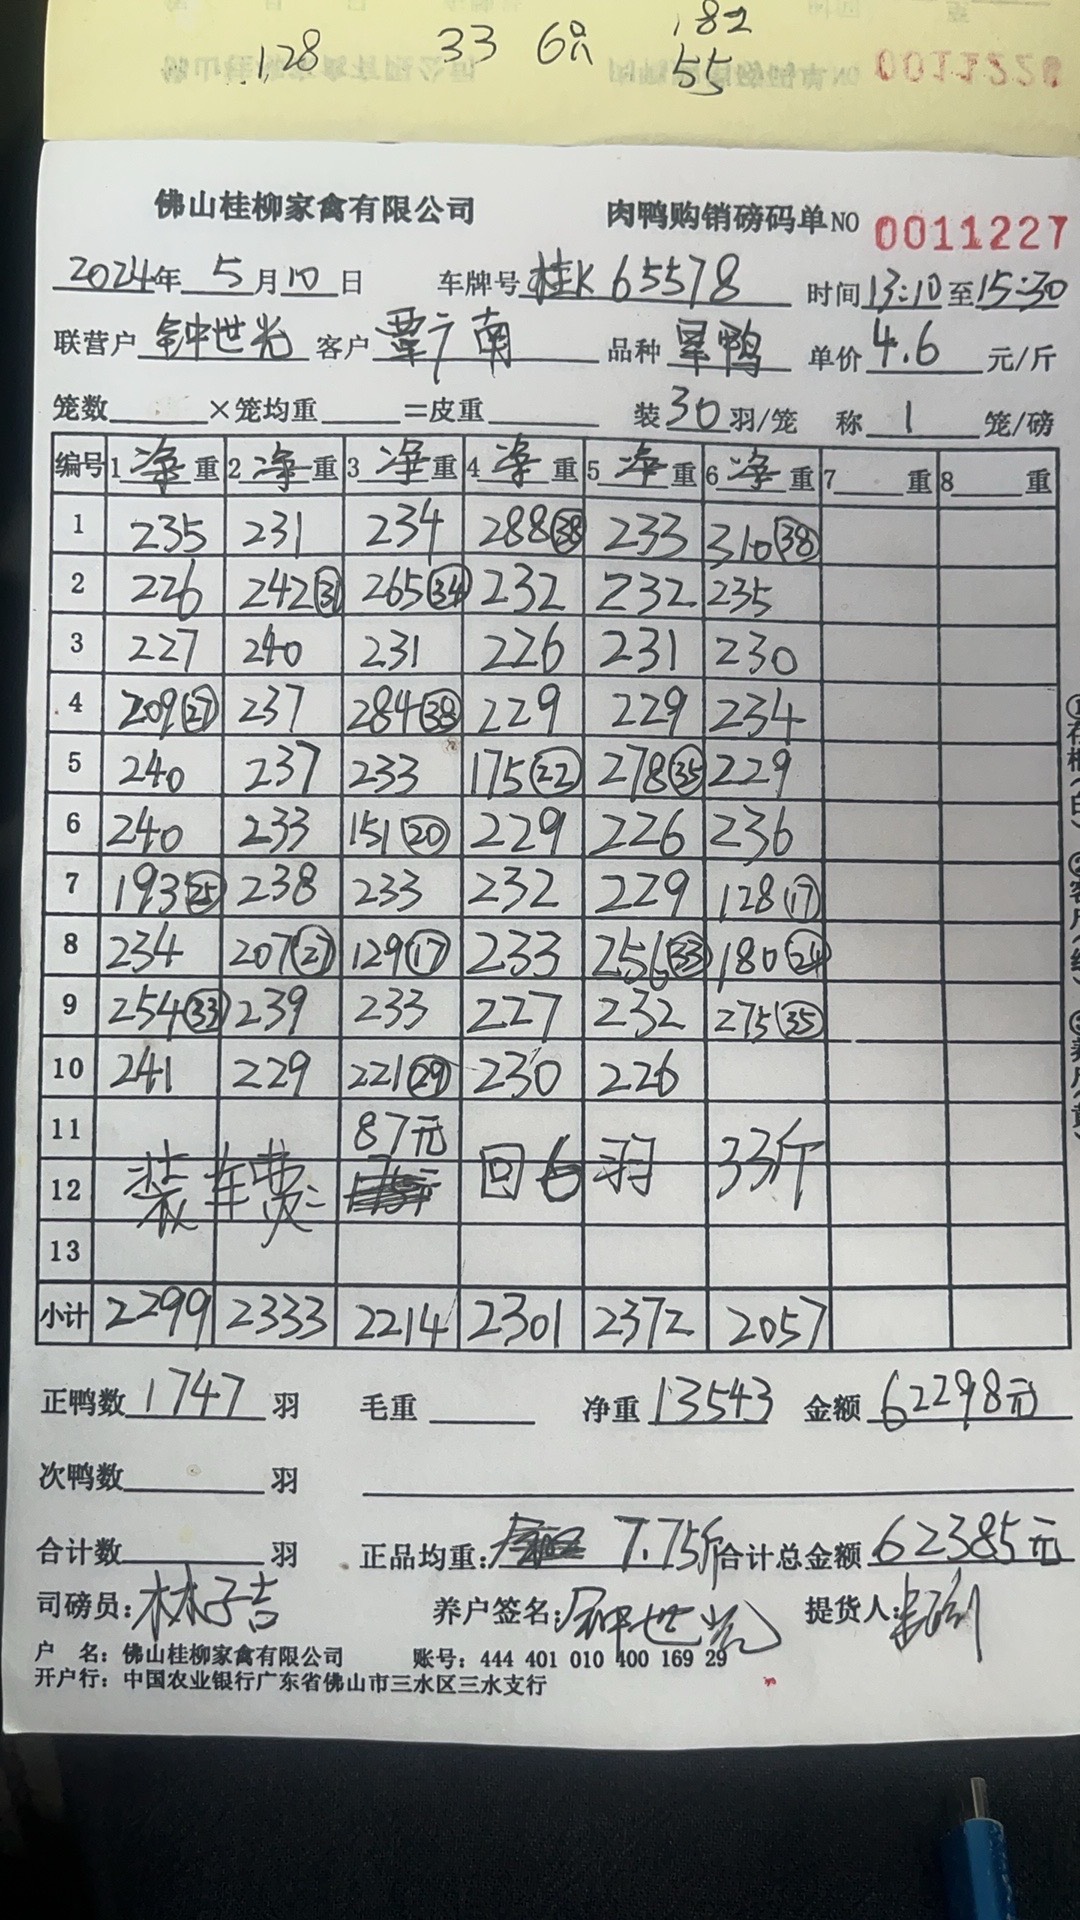 128 33 6只 182
55
0011228
佛山桂柳家禽有限公司 肉鸭购销磅码单NO 0011227
2024年 5月10日 车牌号 桂K65578 时间13:10至15:30
联营户 钟世光 客户 覃广南 品种 单价 4.6 元/斤
笼数 ×笼均重 =皮重 装30羽/笼 称 1 笼/磅
编号 1净重 2净重 3净重 4净重 5净重 6净重 7 重 8 重
1 235 231 234 288(38) 233 310(38)
2 226 242(31) 265(34) 232 232 235
3 227 240 231 226 231 230
4 209(27) 237 284(38) 229 229 234
5 240 237 233 175(22) 278(35) 229
6 240 233 151(20) 229 226 236
7 193(25) 238 233 232 229 128(17)
8 234 207(27) 129(17) 233 256(33) 180(24)
9 254(33) 239 233 227 232 275(35)
10 241 229 221(29) 230 226
11 87元
12 装车费= 回6羽 33斤
13
小计 2299 2333 2214 2301 2372 2057
正鸭数 1747 羽 毛重 净重 13543 金额 62298元
次鸭数 羽
合计数 羽 正品均重: 7.75斤 合计总金额 62385元
司磅员:林子吉 养户签名:钟世光 提货人:
户 名: 佛山桂柳家禽有限公司 账号: 444 401 010 400 169 29
开户行: 中国农业银行广东省佛山市三水区三水支行